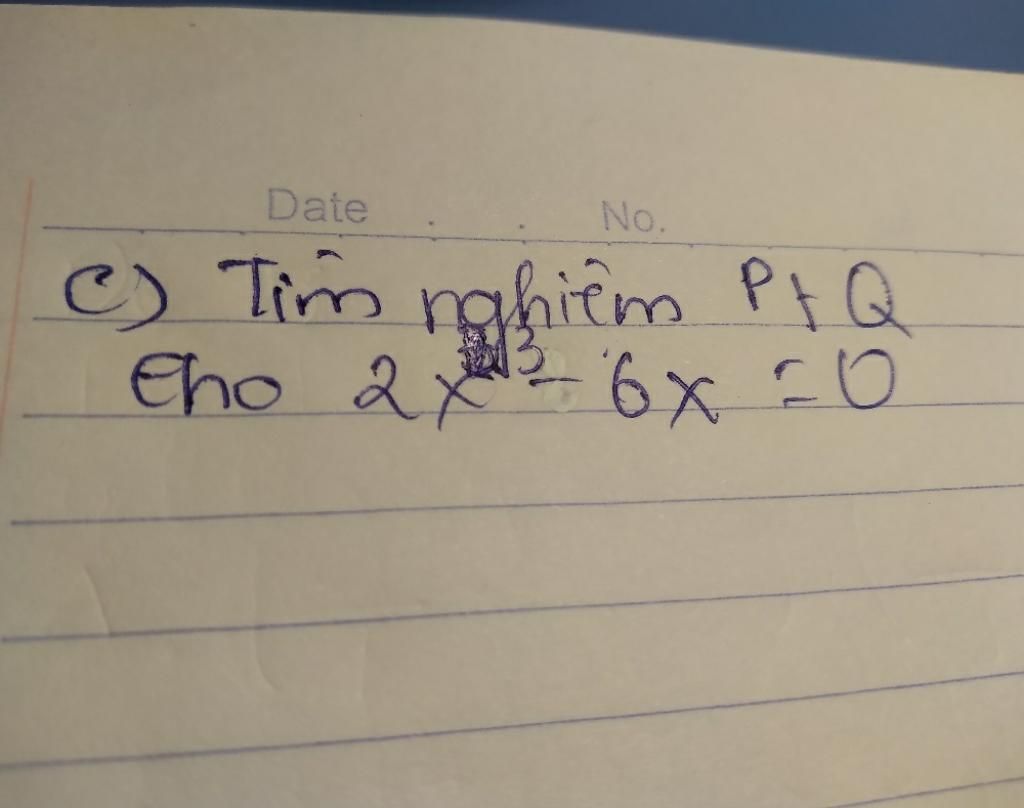 Date . . No.
c) Tìm nghiệm P + Q
Cho 2x³ - 6x = 0